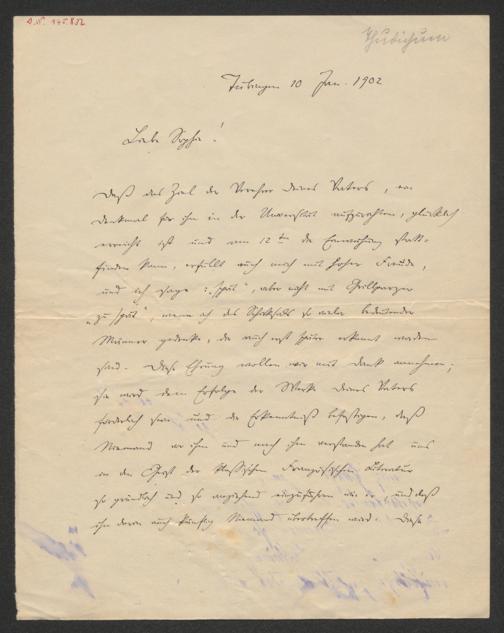 Thudichum
Tübingen 10 Jan. 1902
Liebe Sophie!
Daß das Ziel der Verehrer deines Vaters, ein
Denkmal für ihn in der Universität aufzurichten, glücklich
erreicht ist und am 12ten die Einweihung statt-
finden kann, erfüllt auch mich mit hoher Freude,
und ich sage: "spät", aber nicht mit Grillparzer
"zu spät", wenn ich des Schicksals so vieler bedeutender
Männer gedenke, die auch erst später erkannt worden
sind. Diese Ehrung wollen wir mit Dank annehmen;
sie wird dem Erfolge der Werke deines Vaters
förderlich sein und die Erkenntniß befestigen, daß
Niemand vor ihm und nach ihm verstanden hat uns
in den Geist der klassischen Französischen Literatur
so gründlich und so anziehend einzuführen wie er, und daß
ihn darin auch künftig Niemand übertreffen wird. Diese